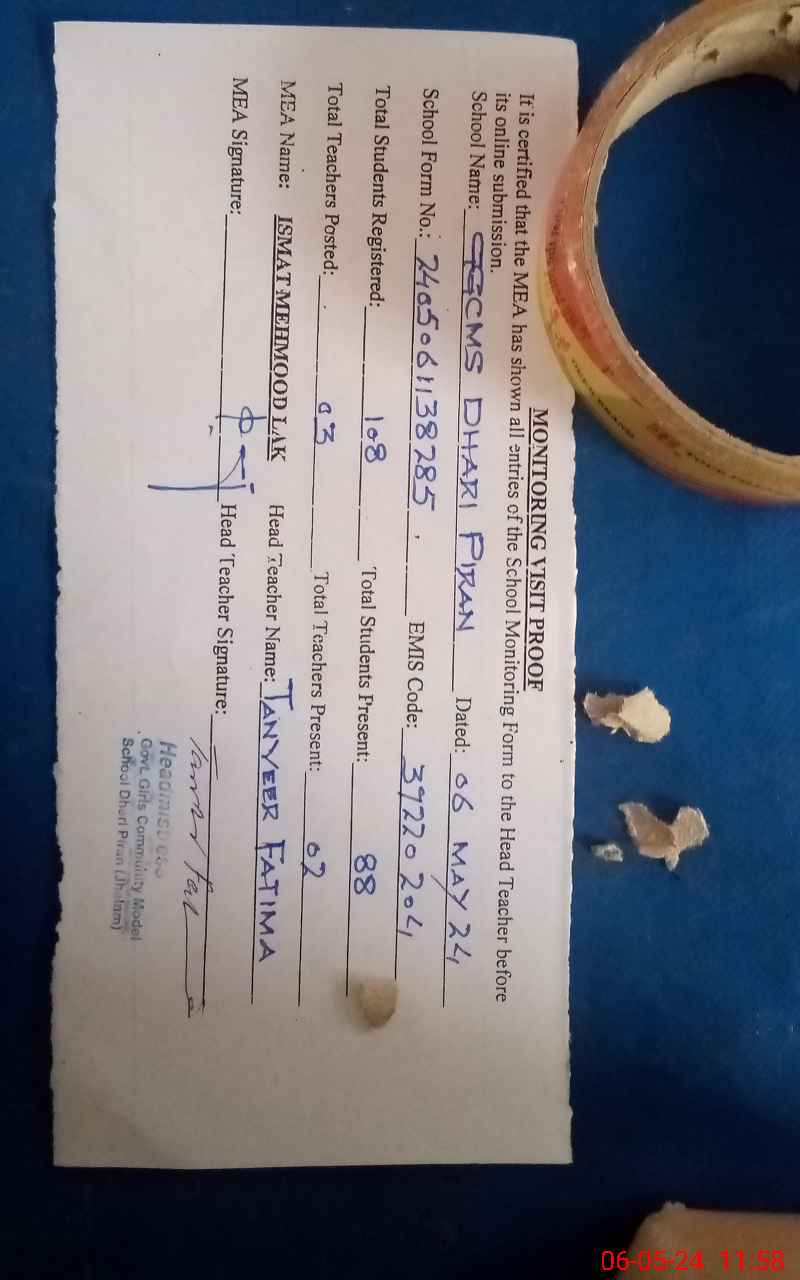 MONITORING VISIT PROOF
It is certified that the MEA has shown all entries of the School Monitoring Form to the Head Teacher before
its online submission.
School Name: GGCMS DHARI PIRAN Dated: 06 MAY 24
School Form No.: 2405061138285 EMIS Code: 39220204
Total Students Registered: 108 Total Students Present: 88
Total Teachers Posted: 03 Total Teachers Present: 02
MEA Name: ISMAT MEHMOOD LAK Head Teacher Name: TANVEER FATIMA
MEA Signature: Head Teacher Signature:
Headmistress
Govt. Girls Community Model
School Dhari Piran (Jhelam)
06-05-24 11:58